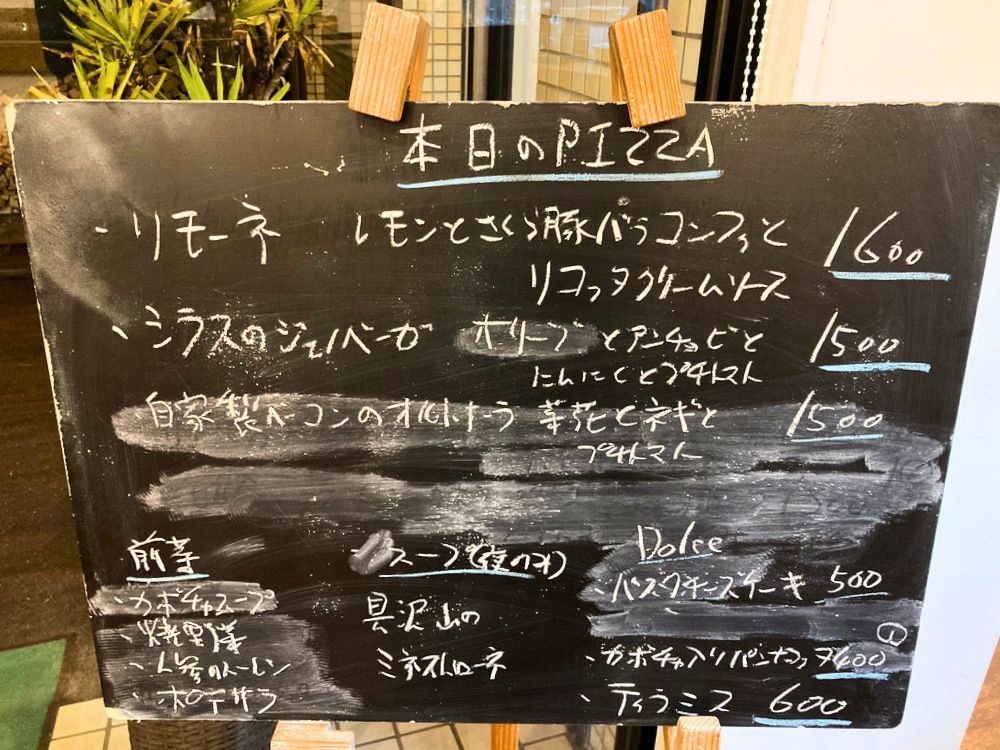 本日のPIZZA
・リモーネ レモンとさくら豚バラコンフィと 1600
リコッタクリームソース
・シラスのジェノベーゼ オリーブとアンチョビと 1500
にんにくとプチトマト
自家製ベーコンのオルトラーナ 菜花とネギと 1500
プチトマト
前菜 スープ(夜のみ) Dolce
・カボチャスープ
・バスクチーズケーキ 500
・焼野菜
具沢山の
・人参のムーレン
ミネストローネ
・カボチャ入りパンナコッタ 400
・ポテサラ
・ティラミス 600